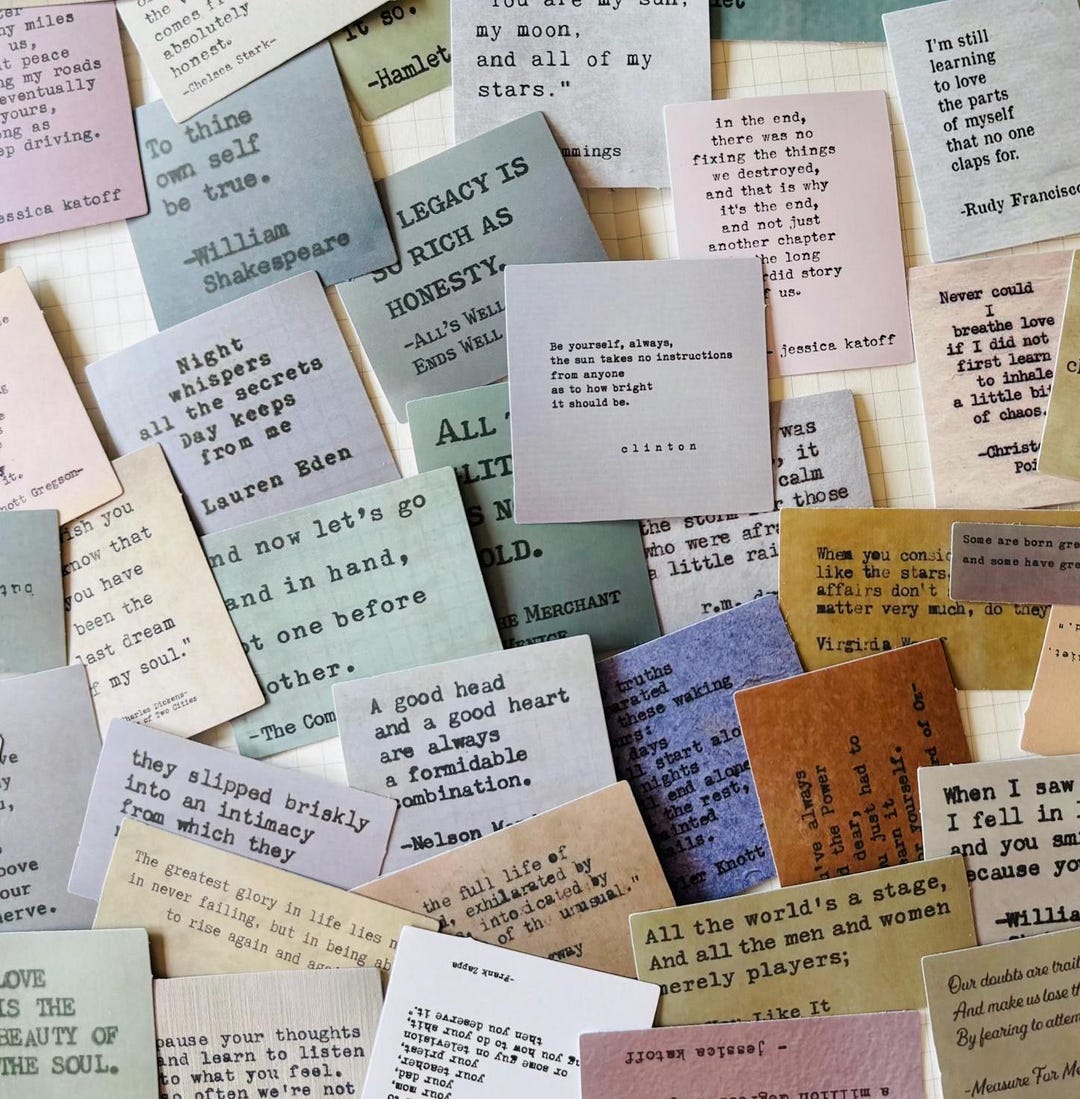 my miles
us,
t peace
ng my roads
eventually
yours,
ong as
ep driving.
essica katoff
the v
comes f
absolutely
honest.
-Chelsea Stark-
it so.
-Hamlet
"You are my sun,
my moon,
and all of my
stars."
mmings
I'm still
learning
to love
the parts
of myself
that no one
claps for.
-Rudy Francisco
To thine
own self
be true.
-William
Shakespeare
LEGACY IS
SO RICH AS
HONESTY.
-ALL'S WELL
ENDS WELL
in the end,
there was no
fixing the things
we destroyed,
and that is why
it's the end,
and not just
another chapter
the long
did story
us.
- jessica katoff
Be yourself, always,
the sun takes no instructions
from anyone
as to how bright
it should be.
clinton
Never could
I
breathe love
if I did not
first learn
to inhale
a little bit
of chaos.
-Christ
Poi
Night
whispers
all the secrets
Day keeps
from me
Lauren Eden
it.
mott Gregson-
ALL
LIT
S N
OLD.
HE MERCHANT
VENICE
was
, it
calm
r those
the storm
who were afra
a little rai
r.m. dr
ish you
know that
you have
been the
last dream
f my soul."
harles Dickens-
of Two Cities
nd now let's go
and in hand,
ot one before
other.
-The Com
When you consid
like the stars,
affairs don't
matter very much, do they
Virginia Woolf
Some are born gre
and some have gre
A good head
and a good heart
are always
a formidable
combination.
-Nelson Man
truths
arated
these waking
urs:
days
ll start alo
nights
ll end alone
the rest,
inted
ails.
ler Knott
've always
the Power
dear, had to
u just had to
earn it
or yourself.
rd of Oz-
they slipped briskly
into an intimacy
from which they
When I saw
I fell in l
and you smi
ecause you
-Willia
The greatest glory in life lies n
in never failing, but in being ab
to rise again and aga
the full life of
d, exhilarated by
d, intoxicated by
of the unusual."
way
All the world's a stage,
And all the men and women
merely players;
You Like It
ve
y
u,
bove
our
nerve.
LOVE
IS THE
BEAUTY OF
THE SOUL.
pause your thoughts
and learn to listen
to what you feel.
so often we're not
your mom,
your dad,
your teacher,
your priest,
or some guy on television
ng you how to do your shit,
then you deserve it."
-Frank Zappa
a million degrees
- jessica katoff
Our doubts are trait
And make us lose th
By fearing to attem
-Measure For Me